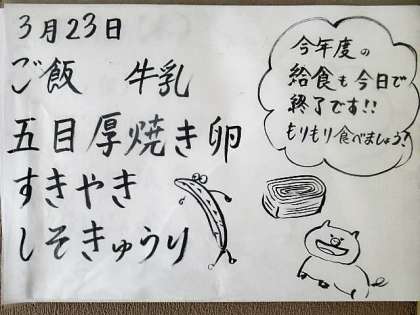 3月23日
ご飯 牛乳
五目厚焼き卵
すきやき
しそきゅうり
今年度の
給食も今日で
終了です!!
もりもり食べましょう!